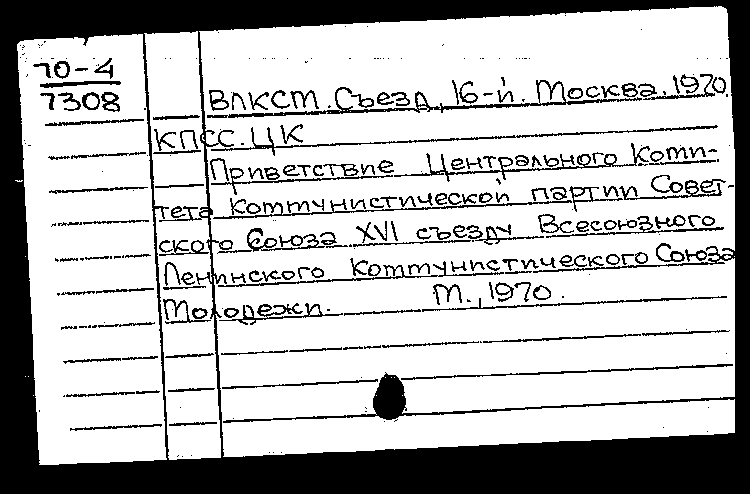 70-4
7308
ВЛКСМ. Съезд, 16-й. Москва. 1970
КПСС. ЦК
Приветствие Центрального Коми-
тета Коммунистической партии Совет-
ского Союза XVI съезду Всесоюзного
Ленинского Коммунистического Союза
Молодежи. М., 1970.